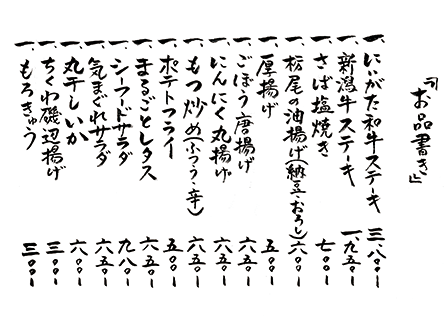 『お品書き』
一、にいがた和牛ステーキ 三、八〇〇ー
一、新潟牛ステーキ 一、九五〇ー
一、さば塩焼き 七〇〇ー
一、栃尾の油揚げ(納豆・おろし) 六〇〇ー
一、厚揚げ 五〇〇ー
一、ごぼう唐揚げ 六五〇ー
一、にんにく丸揚げ 六五〇ー
一、もつ炒め(ふつう・辛) 六五〇ー
一、ポテトフライ 五〇〇ー
一、まるごとレタス 六五〇ー
一、シーフードサラダ 九八〇ー
一、気まぐれサラダ 六五〇ー
一、丸干しいか 六〇〇ー
一、ちくわ磯辺揚げ 三〇〇ー
一、もろきゅう 三〇〇ー